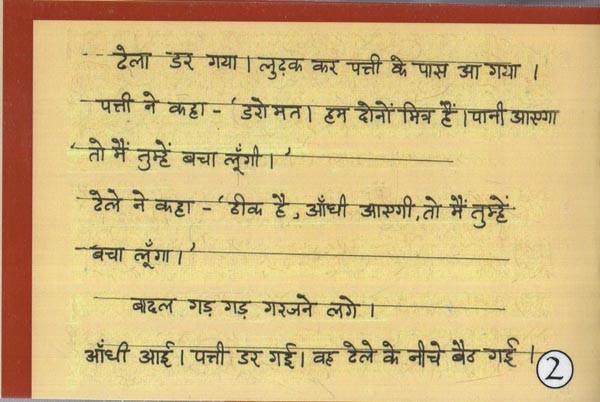 ढेला डर गया। लुढ़क कर पत्ती के पास आ गया ।
पत्ती ने कहा - 'डरो मत। हम दोनों मित्र हैं। पानी आएगा
'तो मैं तुम्हें बचा लूँगी।'
ढेले ने कहा - 'ठीक है, आँधी आएगी, तो मैं तुम्हें
बचा लूँगा।'
बादल गड़ गड़ गरजने लगे ।
आँधी आई। पत्ती डर गई। वह ढेले के नीचे बैठ गई ।
2